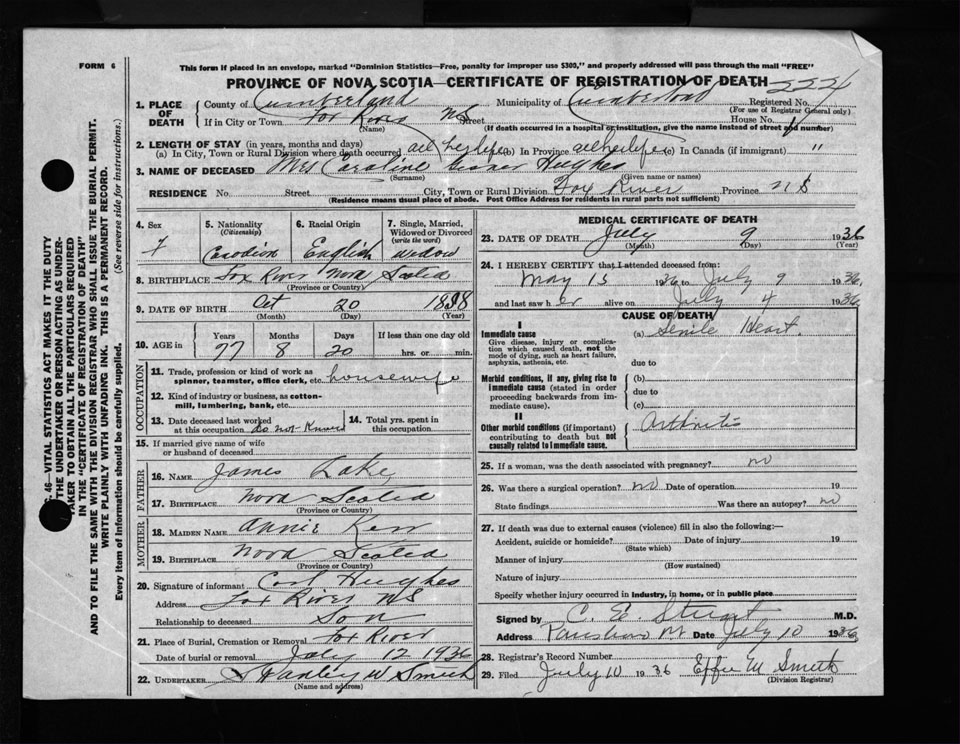 FORM 6
This form if placed in an envelope, marked "Dominion Statistics—Free, penalty for improper use $300," and properly addressed will pass through the mail "FREE"
PROVINCE OF NOVA SCOTIA—CERTIFICATE OF REGISTRATION OF DEATH
2224
1. PLACE OF DEATH
County of Cumberland Municipality of Cumberland Registered No.
(For use of Registrar General only)
If in City or Town Fox River NS Street House No.
(Name) (If death occurred in a hospital or institution, give the name instead of street and number)
2. LENGTH OF STAY (in years, months and days)
(a) In City, Town or Rural Division where death occurred all her life (b) In Province all her life (c) In Canada (if immigrant) "
3. NAME OF DECEASED Mrs Caroline Hughes
(Surname) (Given name or names)
RESIDENCE No. Street City, Town or Rural Division Fox River Province N S
(Residence means usual place of abode. Post Office Address for residents in rural parts not sufficient)
4. Sex
F
5. Nationality
(Citizenship)
Canadian
6. Racial Origin
English
7. Single, Married, Widowed or Divorced
(write the word)
widow
8. BIRTHPLACE Fox River Nova Scotia
(Province or Country)
9. DATE OF BIRTH Oct 20
(Month) (Day) (Year)
10. AGE in
Years Months Days If less than one day old
77 8 20 hrs. or min.
OCCUPATION
11. Trade, profession or kind of work as spinner, teamster, office clerk, etc. housewife
12. Kind of industry or business, as cotton-mill, lumbering, bank, etc.
13. Date deceased last worked at this occupation do not know
14. Total yrs. spent in this occupation
15. If married give name of wife or husband of deceased
FATHER
16. NAME James Lake
17. BIRTHPLACE Nova Scotia
(Province or Country)
MOTHER
18. MAIDEN NAME Annie Kerr
19. BIRTHPLACE Nova Scotia
(Province or Country)
20. Signature of informant Carl Hughes
Address Fox River NS
Relationship to deceased Son
21. Place of Burial, Cremation or Removal Fox River
Date of burial or removal July 12 1936
22. UNDERTAKER Stanley W Smith
(Name and address)
MEDICAL CERTIFICATE OF DEATH
23. DATE OF DEATH July 9 1936
(Month) (Day) (Year)
24. I HEREBY CERTIFY that I attended deceased from:
May 13 1936 to July 9 1936,
and last saw her alive on July 4 1936
CAUSE OF DEATH
I
Immediate cause
Give disease, injury or complication which caused death, not the mode of dying, such as heart failure, asphyxia, asthenia, etc.
(a) Senile Heart.
due to
Morbid conditions, if any, giving rise to immediate cause (stated in order proceeding backwards from immediate cause).
(b)
due to
(c)
II
Other morbid conditions (if important) contributing to death but not causally related to immediate cause.
Arthritis
25. If a woman, was the death associated with pregnancy? no
26. Was there a surgical operation? no Date of operation 19
State findings Was there an autopsy? no
27. If death was due to external causes (violence) fill in also the following:—
Accident, suicide or homicide? Date of injury 19
(State which)
Manner of injury
(How sustained)
Nature of injury
Specify whether injury occurred in industry, in home, or in public place
Signed by C. E. M.D.
Address Date July 10 1936
28. Registrar's Record Number
29. Filed July 10 1936 Effie M Smith
(Division Registrar)
46—VITAL STATISTICS ACT MAKES IT THE DUTY
THE UNDERTAKER OR PERSON ACTING AS UNDER-
TAKER TO OBTAIN ALL THE PARTICULARS REQUIRED
IN THE "CERTIFICATE OF REGISTRATION OF DEATH"
AND TO FILE THE SAME WITH THE DIVISION REGISTRAR WHO SHALL ISSUE THE BURIAL PERMIT.
WRITE PLAINLY WITH UNFADING INK. THIS IS A PERMANENT RECORD.
Every item of Information should be carefully supplied. (See reverse side for instructions.)